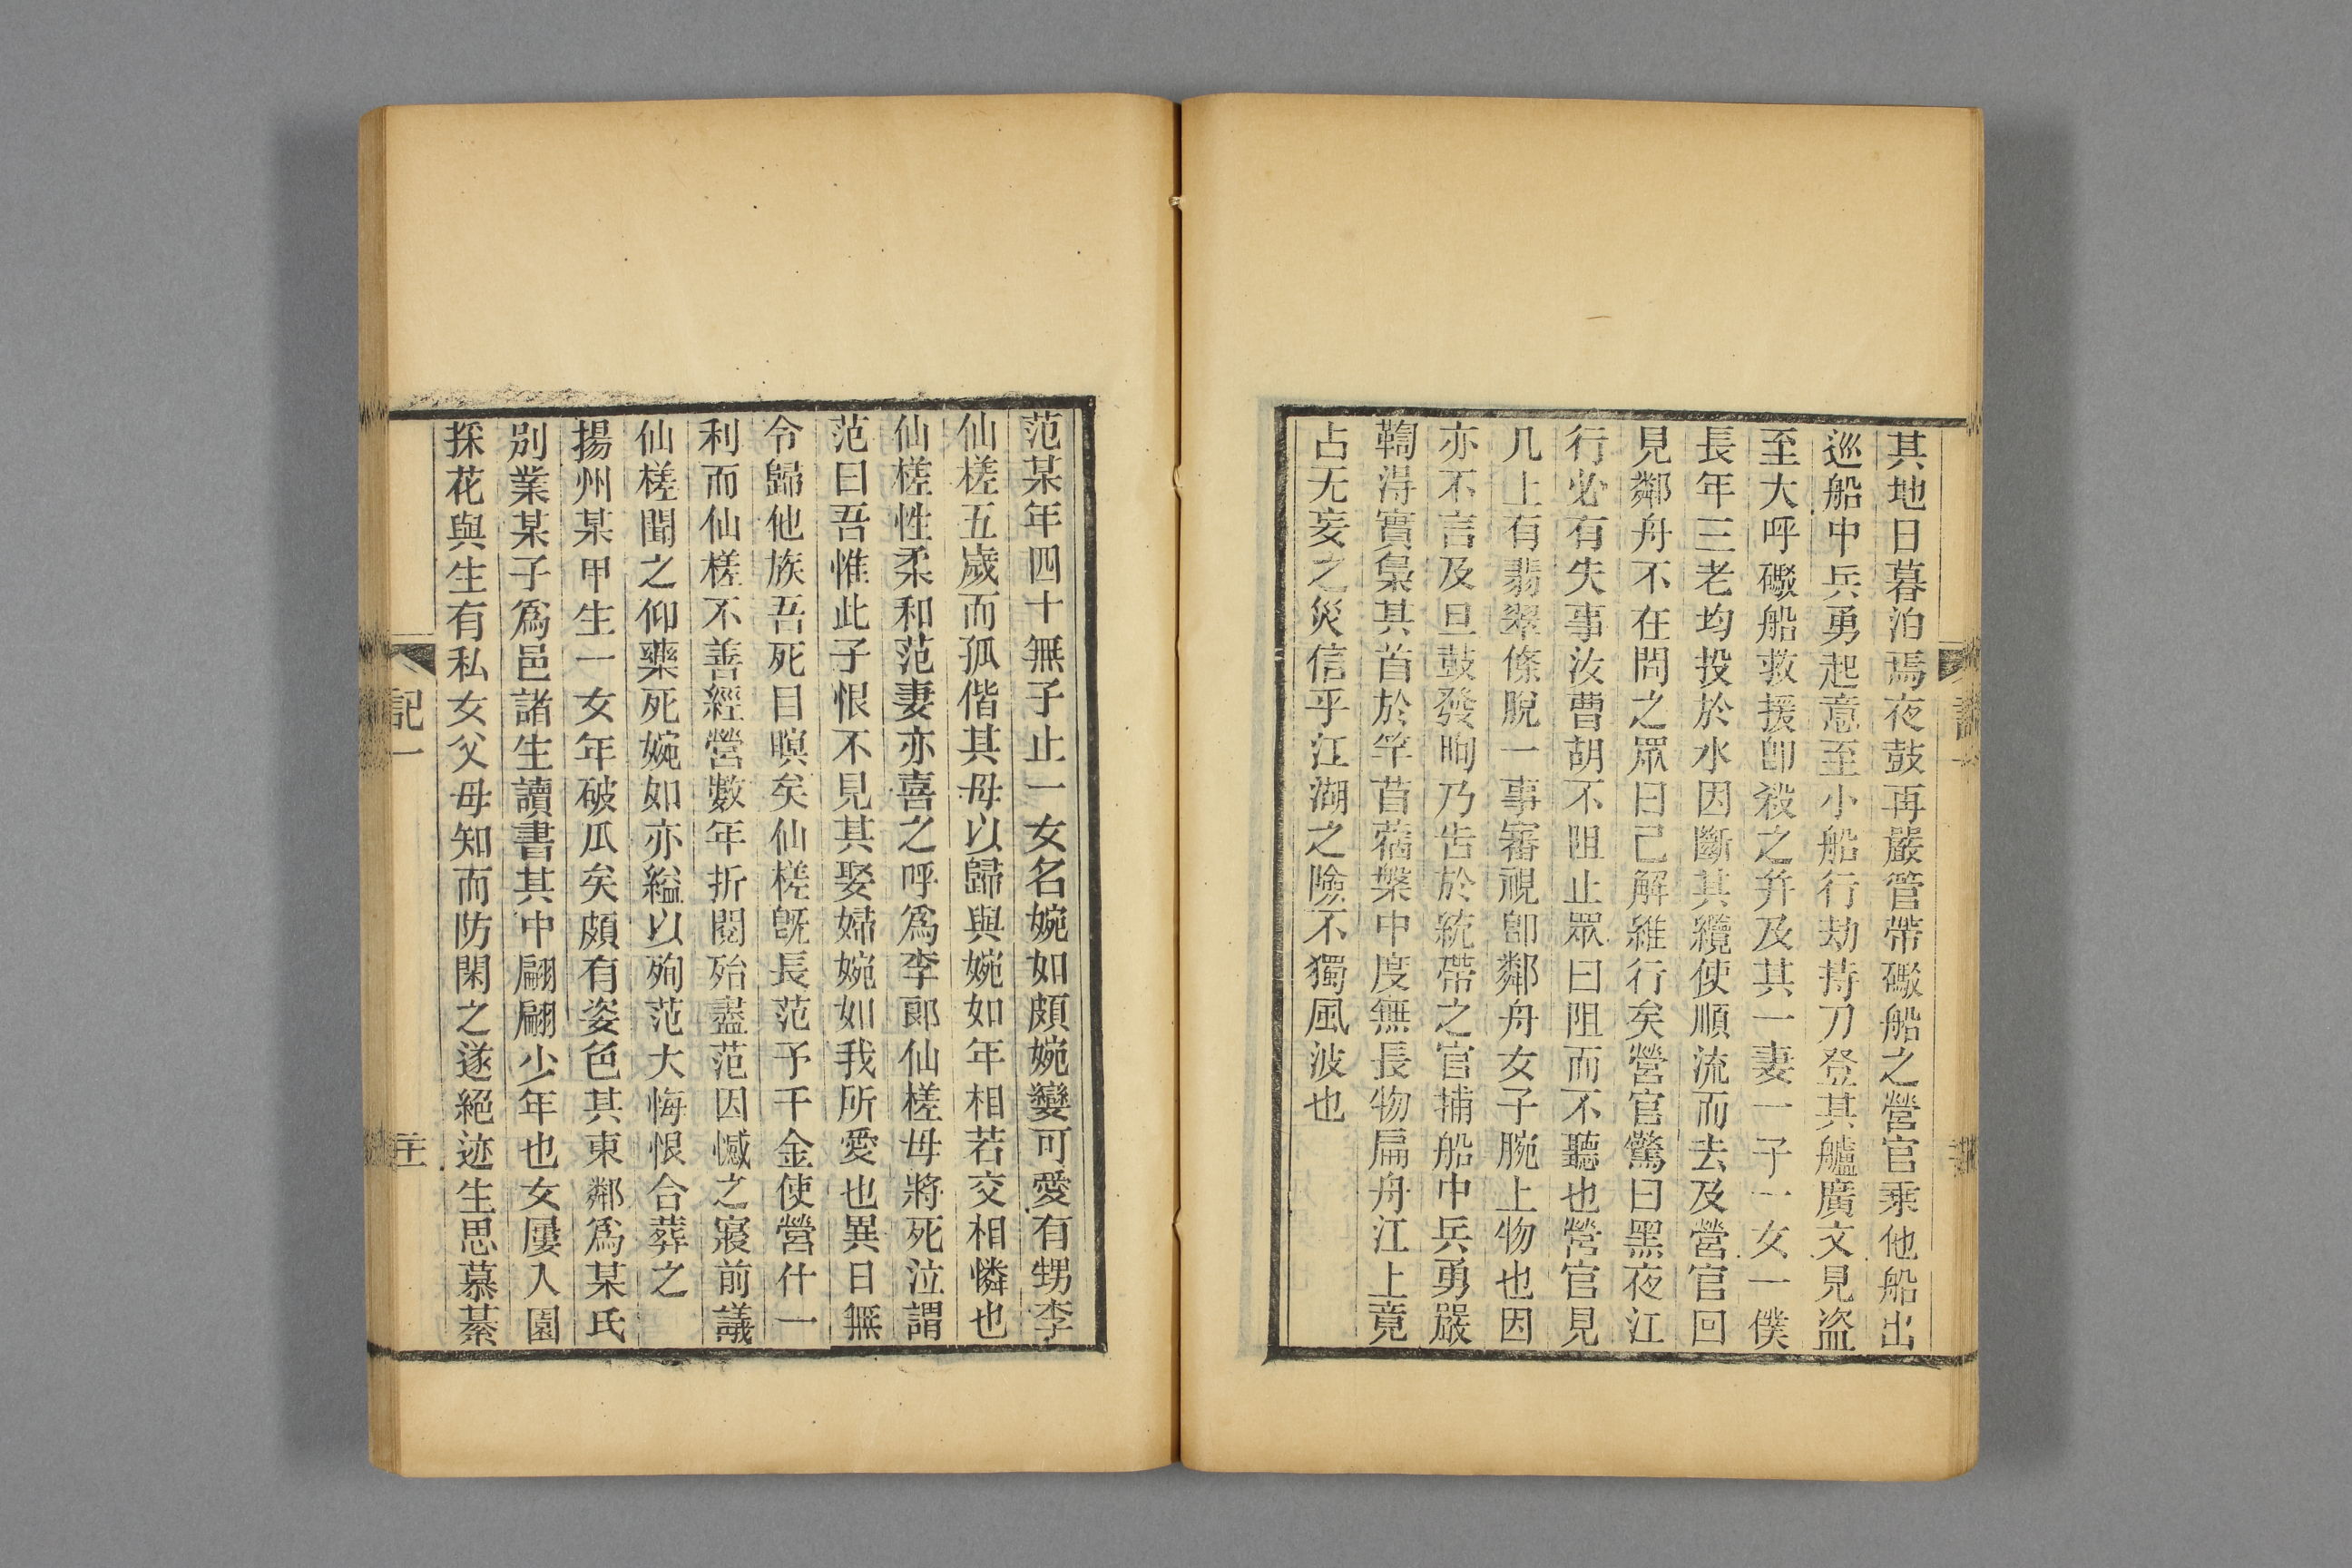 其地日暮泊焉夜鼓再嚴管帶礮船之營官乘他船出
巡船中兵勇起意至小船行劫持刀登其艫廣文見盜
至大呼礮船救援卽殺之幷及其一妻一子一女一僕
長年三老均投於水因斷其纜使順流而去及營官回
見鄰舟不在問之眾曰已解維行矣營官驚曰黑夜江
行必有失事汝曹胡不阻止眾曰阻而不聽也營官見
几上有翡翠條脫一事審視卽鄰舟女子腕上物也因
亦不言及旦鼓發晌乃告於統帶之官捕船中兵勇嚴
鞫得實梟其首於竿苜蓿槃中度無長物扁舟江上竟
占无妄之災信乎江湖之險不獨風波也
范某年四十無子止一女名婉如頗婉孌可愛有甥李
仙槎五歲而孤偕其母以歸與婉如年相若交相憐也
仙槎性柔和范妻亦喜之呼爲李郎仙槎母將死泣謂
范曰吾惟此子恨不見其娶婦婉如我所愛也異日無
令歸他族吾死目瞑矣仙槎旣長范予千金使營什一
利而仙槎不善經營數年折閱殆盡范因憾之寢前議
仙槎聞之仰藥死婉如亦縊以殉范大悔恨合葬之
揚州某甲生一女年破瓜矣頗有姿色其東鄰爲某氏
別業某子爲邑諸生讀書其中翩翩少年也女屢入園
採花與生有私女父母知而防閑之遂絕迹生思慕綦
記一